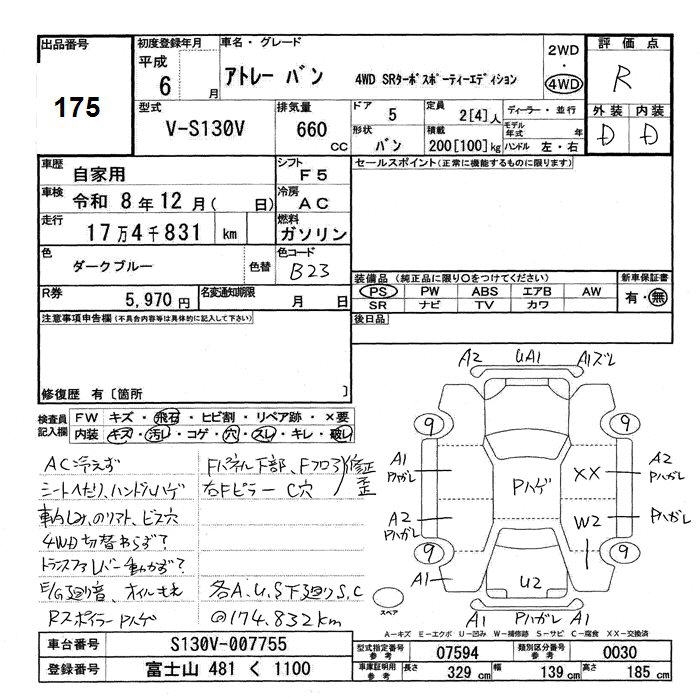 出品番号
175
初度登録年月
平成
6 月
車名・グレード
アトレー バン 4WD SRターボスポーティーエディション
2WD
・
4WD
評価点
R
型式
V-S130V
排気量
660 CC
ドア 5
形状 バン
定員 2[4]人
積載 200[100]kg
ディーラー・並行
モデル年式 年
ハンドル 左・右
外装 内装
D D
車歴 自家用
シフト F5
車検 令和 8年 12月( 日)
冷房 AC
走行 17万4千831 km
燃料 ガソリン
色 ダークブルー 色替
色コード B23
R券 5,970円
名変通知期限 月 日
セールスポイント(正常に機能するものに限ります)
装備品 (純正品に限り○をつけてください)
新車保証書
PS PW ABS エアB AW
SR ナビ TV カワ
有・無
後日品
注意事項申告欄(不具合内容等は具体的に記入して下さい)
修復歴 有〔箇所 〕
検査員記入欄
FW キズ・飛石・ヒビ割・リペア跡・×要
内装 キズ・汚レ・コゲ・穴・スレ・キレ・破レ
AC冷えず
シートヘたり、ハンドルハゲ
車内しみ、のりアト、ビス穴
4WD切替わらず?
トランスファレバー動かず?
E/G廻り音、オイルもれ
Rスポイラー Pハゲ
Fパネル下部、Fフロア 修正 歪
右Fピラー C穴
各A.U.S下廻りS.C
@174.832km
A2 UA1 A1ズレ
9 9
A1 Pハガレ
A2 Pハガレ
Pハゲ
XX
A2 Pハガレ
W2
Pハガレ
9 9
A1
U2
A1 Pハガレ A1
スペア
A-キズ E-エクボ U-凹み W-補修跡 S-サビ C-腐食 XX-交換済
車台番号 S130V-007755
登録番号 富士山 481 く 1100
型式指定番号 参考 07594
類別区分番号 参考 0030
車庫証明用 参考 長さ 329 cm 幅 139 cm 高さ 185 cm